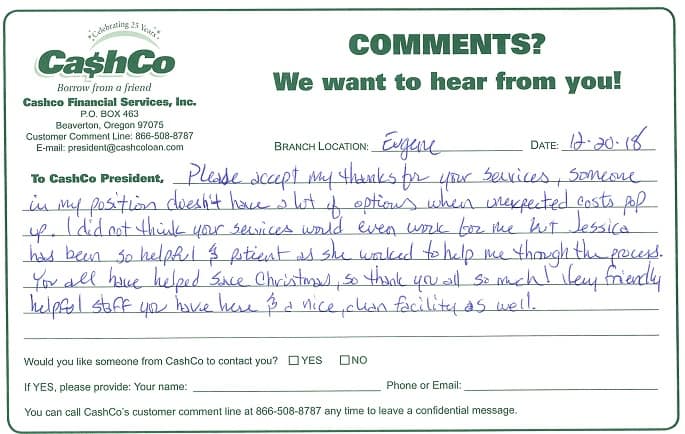 Celebrating 25 Years
Ca$hCo
Borrow from a friend
Cashco Financial Services, Inc.
P.O. BOX 463
Beaverton, Oregon 97075
Customer Comment Line: 866-508-8787
E-mail: president@cashcoloan.com
COMMENTS?
We want to hear from you!
BRANCH LOCATION: Eugene DATE: 12-20-18
To CashCo President, Please accept my thanks for your services, someone
in my position doesn't have a lot of options when unexpected costs pop
up. I did not think your services would even work for me but Jessica
has been so helpful & patient as she worked to help me through the process.
You all have helped save Christmas, so thank you all so much! Very friendly
helpful staff you have here & a nice, clean facility as well.
Would you like someone from CashCo to contact you? ☐YES ☐NO
If YES, please provide: Your name: Phone or Email:
You can call CashCo's customer comment line at 866-508-8787 any time to leave a confidential message.